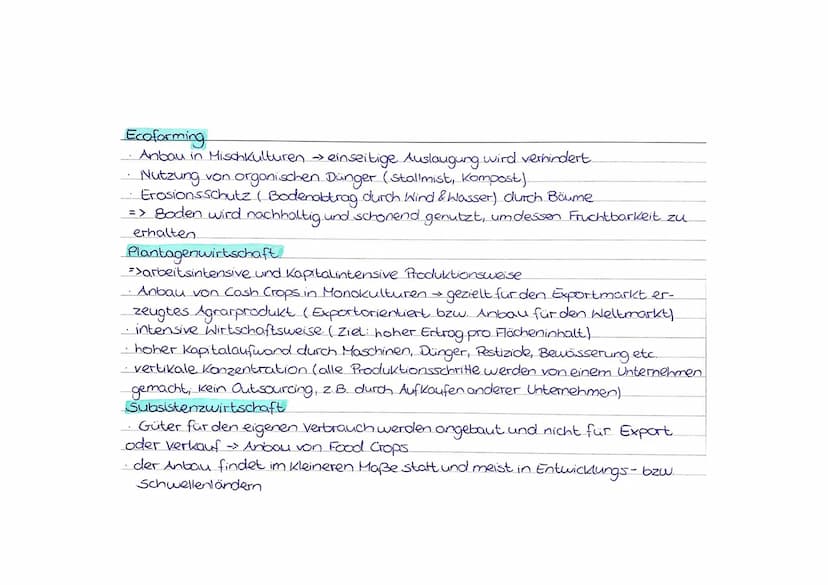 Ecoforming
· Anbau in Mischkulturen → einseitige Auslaugung wird verhindert
· Nutzung von organischen Dünger (Stallmist, Kompost)
· Erosionsschutz (Bodenabtrag durch Wind & Wasser) durch Bäume
=> Boden wird nachhaltig und schonend genutzt, um dessen Fruchtbarkeit zu
erhalten
Plantagenwirtschaft
=> arbeitsintensive und Kapitalintensive Produktionsweise
· Anbau von Cash Crops in Monokulturen → gezielt für den Exportmarkt er-
zeugtes Agrarprodukt (Exportorientiert bzw. Anbau für den Weltmarkt)
· intensive Wirtschaftsweise (Ziel: hoher Ertrag pro Flächeninhalt)
· hoher Kapitalaufwand durch Maschinen, Dünger, Pestizide, Bewässerung etc.
· vertikale Konzentration (alle Produktionsschritte werden von einem Unternehmen
gemacht, kein Outsourcing, z.B. durch Aufkaufen anderer Unternehmen)
Subsistenzwirtschaft
· Güter für den eigenen Verbrauch werden angebaut und nicht für Export
oder Verkauf → Anbau von Food Crops
· der Anbau findet im kleineren Maße statt und meist in Entwicklungs- bzw.
Schwellenländern